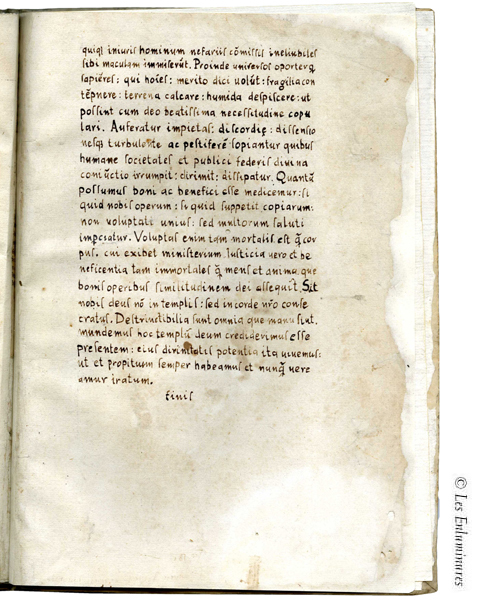 quiq; iniuriis hominum nefariis cōmissis ineluibiles
sibi maculam immiserūt. Proinde universos oportet q̄
sapiētes: qui hoīes: merito dici uolūt: fragilia con
tēpnere: terrena calcare: humida despiscere: ut
possint cum deo beatissima necessitudine copu
lari. Auferatur impietas: discordię: dissensio
nesq; turbulente ac pestiferę sopiantur quibus
humane societates et publici federis diuina
coniūctio irrumpit: dirimit: dissipatur. Quantū
possumus boni ac benefici esse medicemur: si
quid nobis operum: si quid suppetit copiarum:
non voluptati unius: sed multorum saluti
impciatur. Voluptas enim tam mortalis est q̄ cor
pus. cui exibet ministerium. Iusticia uero et be
neficentia tam immortales q̄ mens et anima. que
bonis operibus similitudinem dei assequit. Sit
nobis deus nō in templis: sed in corde nr̄o conse
cratus. Destructibilia sunt omnia que manu fiūt.
mundemus hoc templū deum crediderimus esse
presentem: eius diuinitatis potentia ita uiuemus:
ut et propitium semper habeamus et nunq̄ vere
amur iratum.
finis
© Les Enluminures